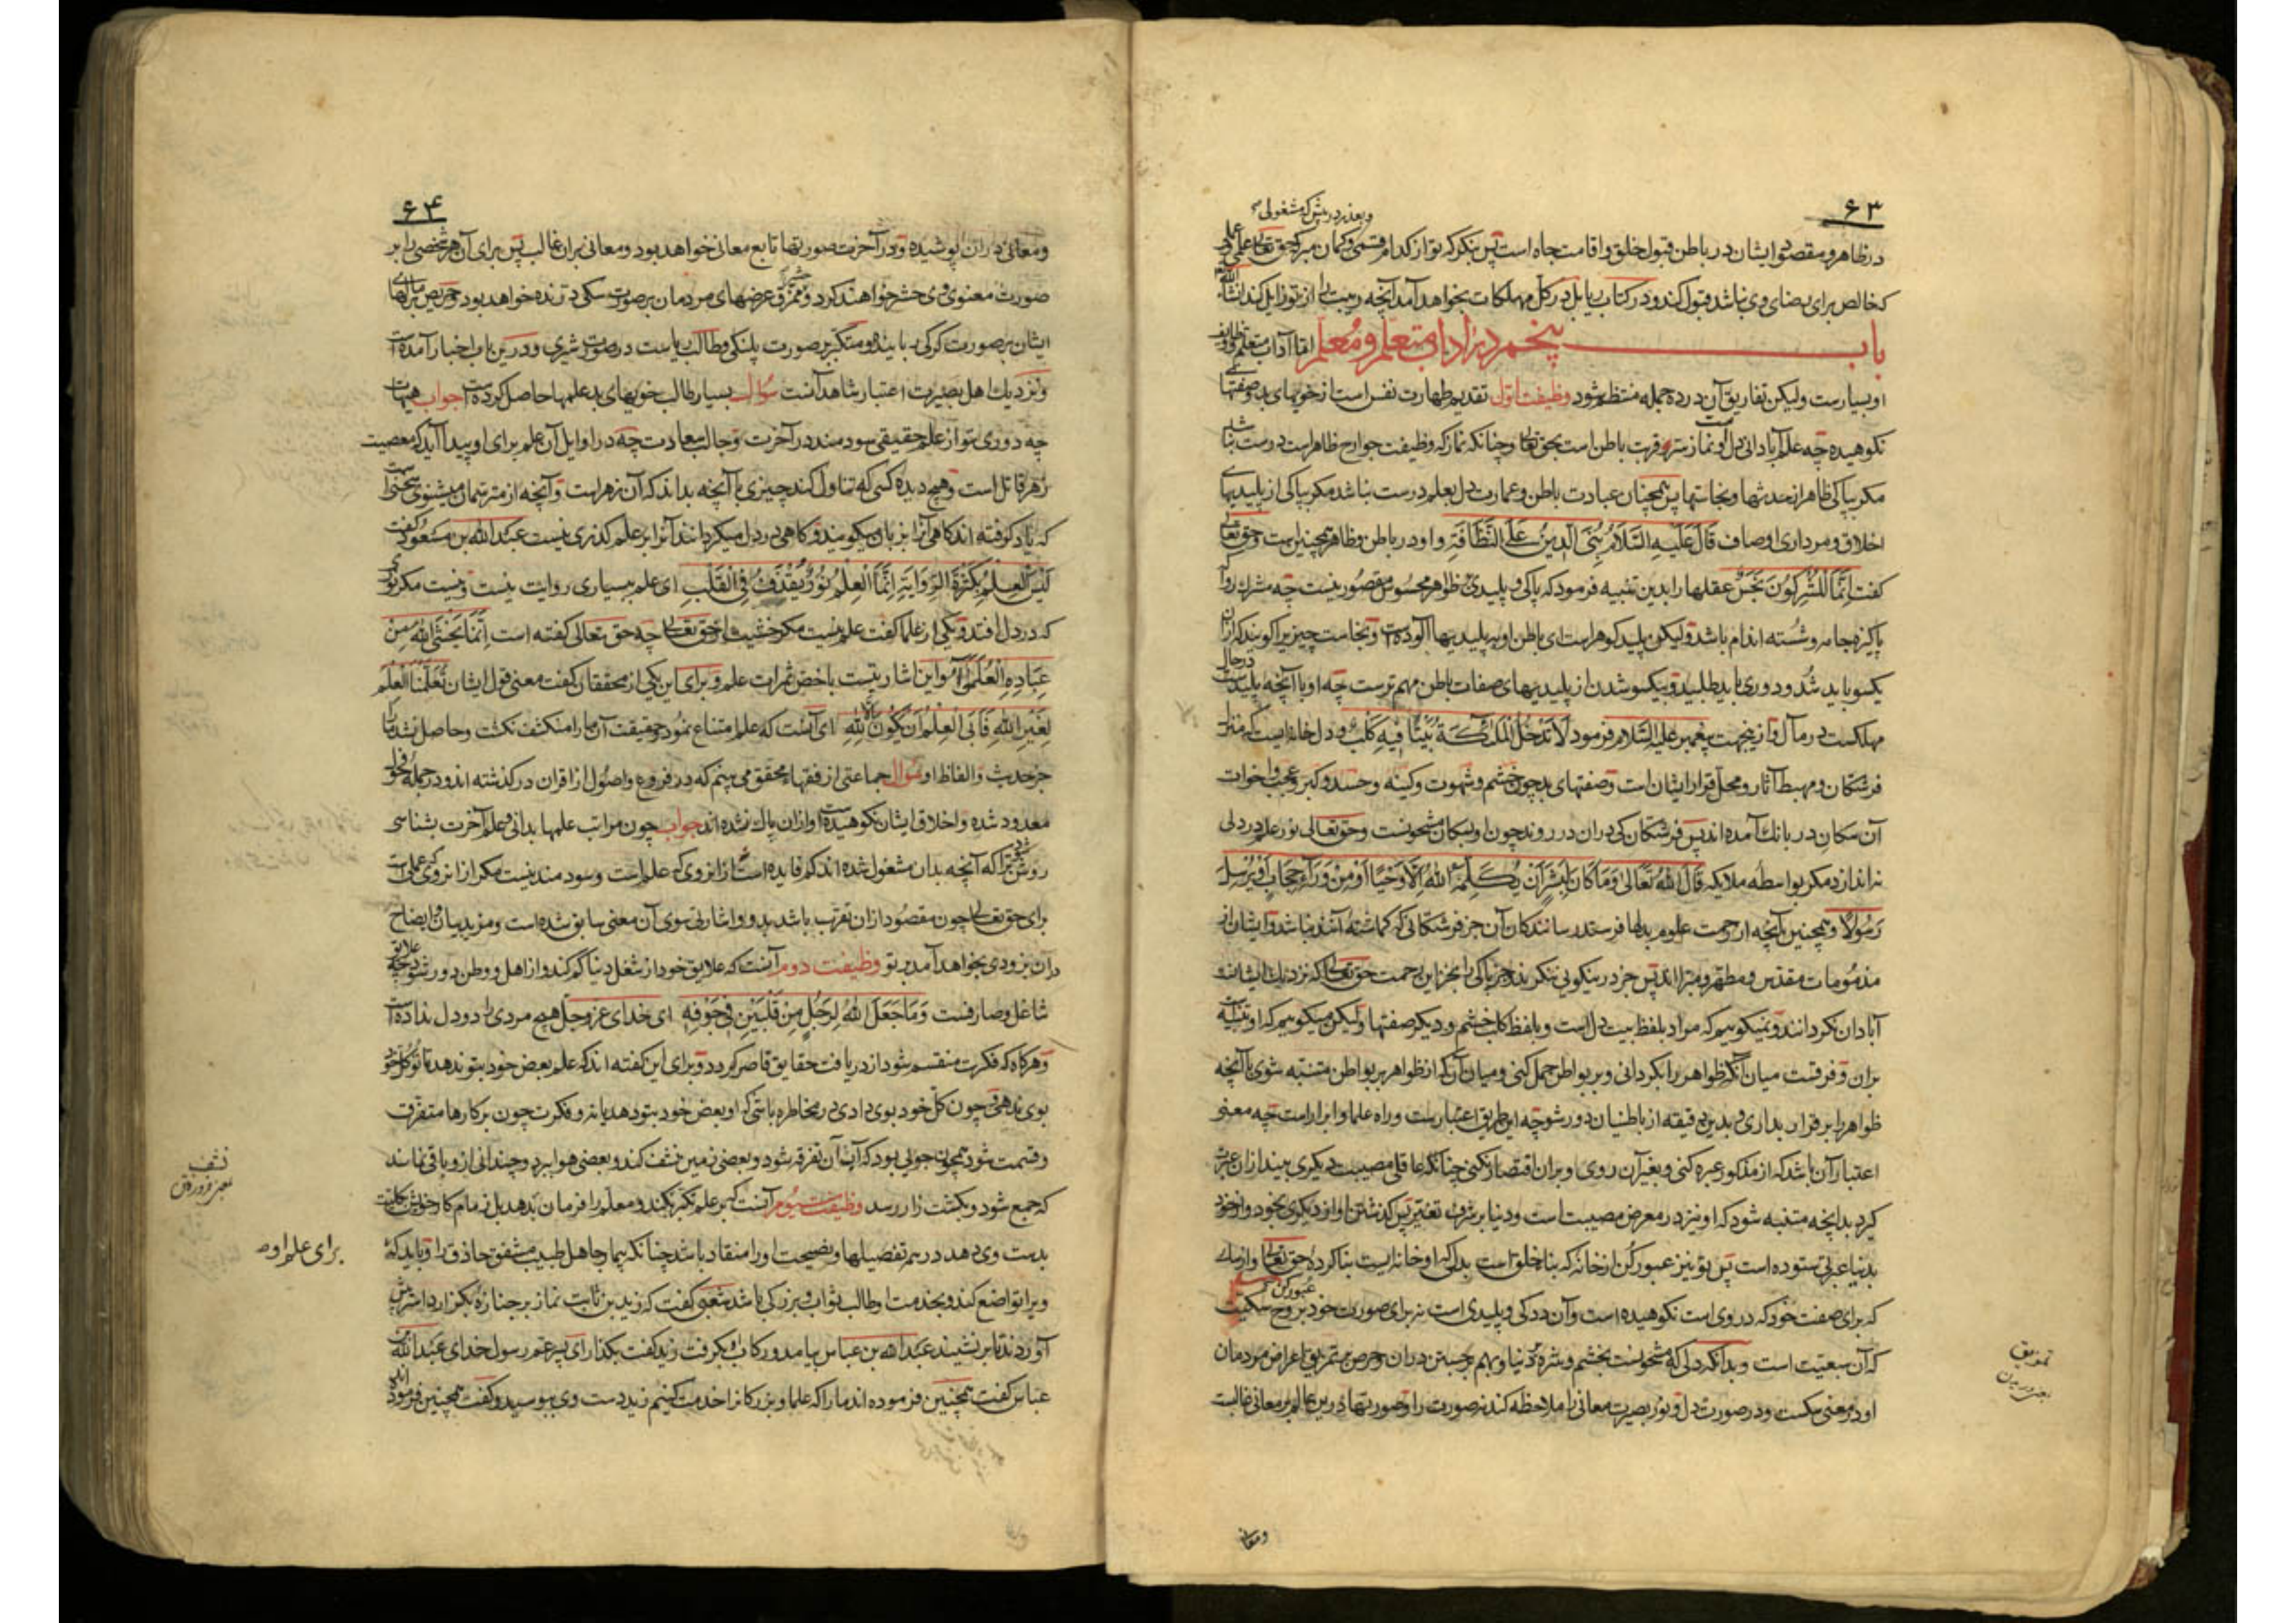 ۶۳
و بعذر درپیش که مشغولی
در ظاهر و مقصود ایشان در باطن قبول خلق و اقامت جاه است پس بنگر که تو از کدام قسمی و گمان مبر که حق تعالی علمی
که خالص برای رضای وی نباشد قبول کند و در کتاب ریا بل در کل مهلکات بخواهد آمد آنچه ریبت از تو زایل کند انشاء الله
باب پنجم در آداب متعلم و معلم اما آداب متعلم و وظایف
او بسیارست ولیکن تفاریق آن در ده جمله منتظم شود وظیفت اول تقدیم طهارت نفس است از خویهای بد و صفتهای
نکوهیده چه علم آبادانی دل و نماز سر و قربت باطن است بحق تعالی و چنانکه نماز که وظیفت جوارح ظاهر است درست نباشد
مگر بپاکی ظاهر از حدثها و نجاستها پس همچنان عبادت باطن و عمارت دل بعلم درست نباشد مگر بپاکی از پلیدیهای
اخلاق و مرداری اوصاف قال علیه السلام بنی الدین علی النظافة و او در باطن و ظاهر همچنین است و حق تعالی
گفت انما المشرکون نجس عقلها را بدین تنبیه فرمود که پاکی و پلیدی بر ظواهر محسوس مقصور نیست چه مشرک روا که
پاکیزه جامه و شسته اندام باشد ولیکن پلید گوهر است ای باطن او به پلیدیها آلوده است و نجاست چیزیرا گویند که ازان
یکسو باید شد و دوری باید طلبید و بیکسو شدن از پلیدیهای صفات باطن مهم ترست چه او با آنچه در حال پلیدست
مهلکست در مآل و ازینجهت پیغمبر علیه السلام فرمود لا تدخل الملائکة بیتا فیه کلب و دل خانه ایست که منزل
فرشتگان و مهبط آثار و محل قرار ایشان است و صفتهای بد چون خشم و شهوت و کینه و حسد و کبر و عجب و اخوات
آن سگان در بانگ آمده اند پس فرشتگان کی دران در روند چون او بسگان مشحونست و حق تعالی نور علم در دلی
نه اندازد مگر بواسطه ملایکه قال الله تعالی وما کان لبشر ان یکلمه الله الا وحیا او من وراء حجاب او یرسل
رسولا و همچنین آنچه از رحمت علوم بدلها فرستد رسانندگان آن جز فرشتگانی که گماشته آنند نباشد و ایشان از
مذمومات مقدس و مطهر و مبرا اند پس جز در نیکویی ننگرند و جز پاکی را بخزاین رحمت حق تعالی که نزدیک ایشانند
آبادان نگردانند و نمیگوییم که مراد بلفظ بیت دل است و بلفظ کلب خشم و دیگر صفتها ولیکن میگوییم که او تنبیه
بران و فرقست میان آنکه ظواهر را بگردانی و بر بواطن حمل کنی و میان آنکه از ظواهر بر بواطن متنبه شوی با آنچه
ظواهر را بر قرار بداری و بدین دقیقه از باطنیان دور شو چه این طریق اعتبارست و راه علما و ابرار است چه معنی
اعتبار آن باشد که از مذکور عبره کنی و بغیر آن روی و بران اقتصار نکنی چنانکه عاقلی مصیبت دیگری بیند ازان عبرت
گیرد بدانچه متنبه شود که او نیز در معرض مصیبت است و دنیا بر شرف تغیر پس گذشتن او از دیگری بخود و از خود
بدنیا عبرتی ستوده است پس تو نیز عبور کن از خانه که بنا خلق است بدل که او خانه ایست بنا کرده حق تعالی و از سگ
عبور کن
که برای صفت خود که در وی است نکوهیده است و آن ددگی و پلیدی است نه برای صورت خود بروح سگیت
که آن سبعیت است و بدانکه دلی که مشحونست بخشم و شره دنیا و بهم برجستن دران و حرص بتمزیق اعراض مردمان
او در معنی سگست و در صورت دل و نور بصیرت معانی را ملاحظه کند نه صورت را و صورتها درین عالم بر معانی غالبست
تمزیق
یعنی دریدن
و معانی
۶۴
و معانی دران پوشیده و در آخرت صورتها تابع معانی خواهد بود و معانی بران غالب پس برای آن هر شخصی را بر
صورت معنوی وی حشر خواهند کرد و ممزق عرضهای مردمان بر صورت سگی درنده خواهد بود و حریص بر مالهای
ایشان بر صورت گرگی رباینده و متکبر بر صورت پلنگی و طالب ریاست در صورت شیری و درین باب اخبار آمده است
و نزدیک اهل بصیرت اعتبار شاهد آنست سؤال بسیار طالب خویهای بد علمها حاصل کرده است جواب هیهات
چه دوری تو از علم حقیقی سودمند در آخرت و جالب سعادت چه در اوایل آن علم برای او پیدا آید که معصیت
زهر قاتل است و هیچ دیده کسی که تناول کند چیزی با آنچه بداند که آن زهر است و آنچه از مترسمان میشنوی سخنی است
که یاد گرفته اند گاهی آنرا بزبان میگویند و گاهی در دل میگردانند آنرا بر علم گذری نیست عبدالله بن مسعود گفت
لیس العلم بکثرة الروایة انما العلم نور یقذف فی القلب ای علم بسیاری روایت نیست و نیست مگر نوری
که در دل افتد و یکی از علما گفت علم نیست مگر خشیت از حق تعالی چه حق تعالی گفته است انما یخشی الله من
عباده العلمؤا و این اشارتیست باخص ثمرات علم و برای این یکی از محققان گفت معنی قول ایشان تعلمنا العلم
لغیر الله فابی العلم ان یکون الا لله ای آنست که علم امتناع نمود و حقیقت آن ما را منکشف نگشت و حاصل نشد ما را
جز حدیث و الفاظ او سؤال جماعتی از فقهاء محقق می بینم که در فروع و اصول از اقران در گذشته اند و در جمله فحول
معدود شده و اخلاق ایشان نکوهیده است و ازان پاک نشده اند جواب چون مراتب علمها بدانی و علم آخرت بشناسی
روشن شود ترا که آنچه بدان مشغول شده اند کم فایده است از انروی که علم است و سودمند نیست مگر از انروی که عملی است
برای حق تعالی چون مقصود ازان تقرب باشد بدو و اشارتی سوی آن معنی سابق شده است و مزید بیان و ایضاح
در آن بزودی بخواهد آمد بر تو وظیفت دوم آنست که علایق خود از شغل دنیا کم کند و از اهل و وطن دور شود چه علایق
شاغل و صارفست وما جعل الله لرجل من قلبین فی جوفه ای خدای عز و جل هیچ مردی را دو دل نداده است
و هرگاه که فکرت منقسم شود از دریافت حقایق قاصر گردد و برای این گفته اند که علم بعض خود بتو ندهد تا تو کل خود
بوی ندهی و چون کل خود بوی دادی در مخاطره باشی که او بعض خود بتو دهد یا نه و فکرت چون بر کارها متفرق
و قسمت شود همچون جویی بود که آب آن تفرقه شود و بعضی زمین نشف کند و بعضی هوا برد و چندانی از و باقی نماند
که جمع شود و بکشت زار رسد وظیفت سیوم آنست که بر علم تکبر نکند و معلم را فرمان ندهد بل زمام کار خویش بکلیت
بدست وی دهد در همه تفصیلها و نصیحت او را منقاد باشد چنانکه بیمار جاهل طبیب مشفق حاذق را و باید که
ویرا تواضع کند و بخدمت او طالب ثواب و بزرگی باشد شعبی گفت که زید بن ثابت نماز بر جنازه بگزارد استرش
آوردند تا بر نشیند عبدالله بن عباس بیامد و رکاب او بگرفت زید گفت بگذار ای پسر عم رسول خدای عبدالله
عباس گفت همچنین فرموده اند ما را که علما و بزرگانرا خدمت کنیم زید دست وی ببوسید و گفت همچنین فرموده اند
نشف
یعنی فرو رفتن
برای علم او